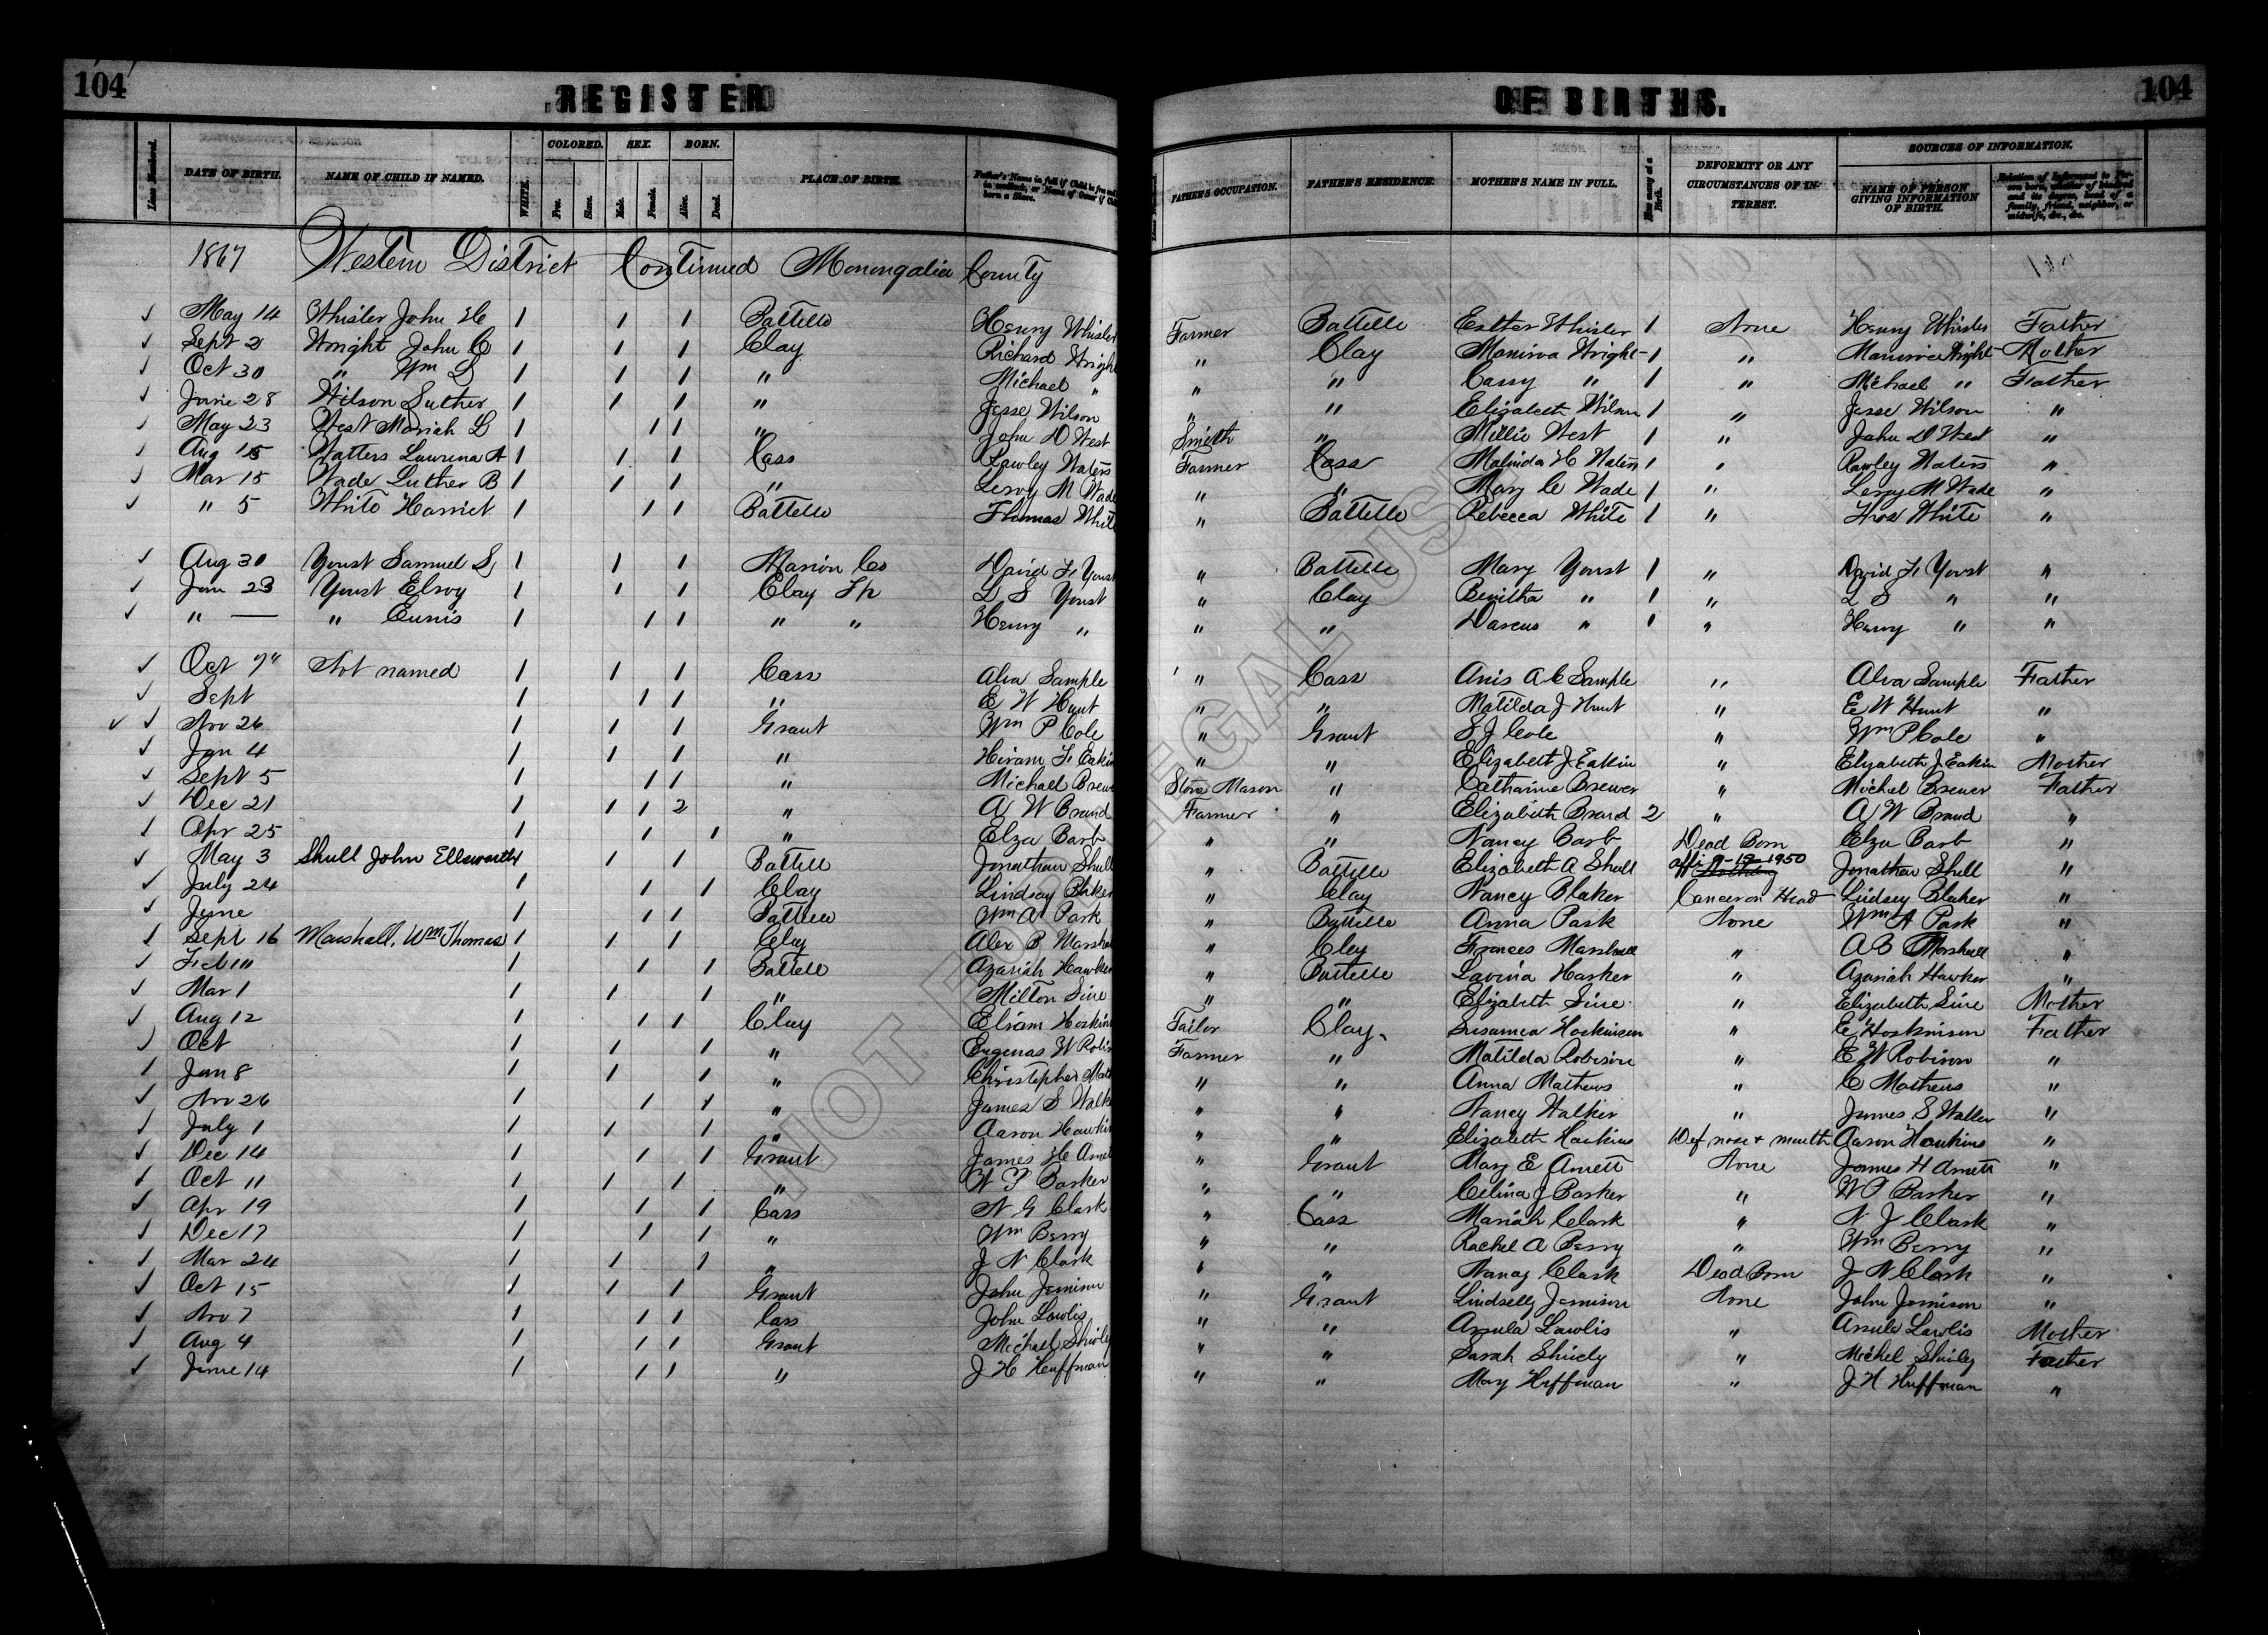 104 REGISTER OF BIRTHS. 104
DATE OF BIRTH. NAME OF CHILD IF NAMED. WHITE. COLORED. Fre. Slave. SEX. Male. Female. BORN. Alive. Dead. PLACE OF BIRTH. FATHER'S OCCUPATION. FATHER'S RESIDENCE. MOTHER'S NAME IN FULL. DEFORMITY OR ANY CIRCUMSTANCES OF INTEREST. SOURCES OF INFORMATION. NAME OF PERSON GIVING INFORMATION OF BIRTH.
1867 Western District Continued Monongalia County
May 14 Whisler John H 1 1 1 Battelle Henry Whisler Farmer Battelle Esther Whisler 1 None Henry Whisler Father
Sept 2 Wright John C 1 1 1 Clay Richard Wright " Clay Manirva Wright 1 " Manirva Wright Mother
Oct 30 " Wm L 1 1 1 " Michael " " " Cassy " 1 " Michael " Father
June 28 Wilson Luther 1 1 1 " Jesse Wilson " " Elizabeth Wilson 1 " Jesse Wilson "
May 23 West Mariah L 1 1 1 " John D West Smith " Millie West 1 " John D West "
Aug 15 Watters Laurena A 1 1 1 Cass Rawley Waters Farmer Cass Malinda H Waters 1 " Rawley Waters "
Mar 15 Wade Luther B 1 1 1 " Leroy M Wade " " Mary C Wade 1 " Leroy M Wade "
" 5 White Harriet 1 1 1 Battelle Thomas White " Battelle Rebecca White 1 " Thos White "
Aug 30 Youst Samuel L 1 1 1 Marion Co David F Youst " Battelle Mary Youst 1 " David F Youst "
Jan 23 Youst Elroy 1 1 1 Clay Tp L S Youst " Clay " 1 " L S " "
" — " Eunis 1 1 1 " " Henry " " " Darcus " 1 " Henry " "
Oct 7" Not named 1 1 1 Cass Alva Sample " Cass Anis A C Sample " Alva Sample Father
Sept 1 1 1 " E W Hunt " " Matilda J Hunt " E W Hunt "
Nov 26 1 1 1 Grant Wm P Cole " Grant S J Cole " Wm P Cole "
Jan 4 1 1 1 " Hiram F Eakin " " Elizabeth J Eakin " Elizabeth J Eakin Mother
Sept 5 1 1 1 " Michael Brewer Stone Mason " Catharine Brewer " Michel Brewer Father
Dec 21 1 1 1 2 " A W Brand Farmer " Elizabeth Brand 2 " A W Brand "
Apr 25 1 1 1 " Elza Barb " " Nancy Barb Dead Born Elza Barb "
May 3 Shull John Ellsworth 1 1 1 Battell Jonathan Shull " Battelle Elizabeth A Shull 1950 Jonathan Shull "
July 24 1 1 1 Clay Lindsay Blaker " Clay Nancy Blaker Cancer on Head Lindsey Blaker "
June 1 1 1 Battelle Wm A Park " Battelle Anna Park None Wm A Park "
Sept 16 Marshall, Wm Thomas 1 1 1 Clay Alex B Marshall " Clay Frances Marshall " A B Marshall "
Feb 1 1 1 Battell Azariah Hawker " Battelle Lavina Hawker " Azariah Hawker "
Mar 1 1 1 1 " Milton Sine " " Elizabeth Sine " Elizabeth Sine Mother
Aug 12 1 1 1 Clay Elsiam Hoskin Tailor Clay Susanna Hoskinson " E Hoskinson Father
Oct 1 1 1 " Eugenas W Robi Farmer " Matilda Robison " E W Robison "
Jan 8 1 1 1 " Christopher Math " " Anna Mathews " C Mathews "
Nov 26 1 1 1 " James S Walk " " Nancy Walker " James S Walker "
July 1 1 1 1 " Aaron Hawkin " " Elizabeth Hawkins Def nose & mouth Aaron Hawkins "
Dec 14 1 1 1 Grant James H Arnet " Grant Mary E Arnett None James H Arnett "
Oct 11 1 1 1 " W P Barker " " Celina J Barker " W P Barker "
Apr 19 1 1 1 Cass N G Clark " Cass Mariah Clark " N J Clark "
Dec 17 1 1 1 " Wm Berry " " Rachel A Berry " Wm Berry "
Mar 24 1 1 1 " J N Clark " " Nancy Clark Dead Born J N Clark "
Oct 15 1 1 1 Grant John Jemison " Grant Lindselly Jemison None John Jemison "
Nov 7 1 1 1 Cass John Lawlis " " Arsula Lawlis " Arsula Lawlis Mother
Aug 4 1 1 1 Grant Michael Shively " " Sarah Shively " Michel Shively Father
June 14 1 1 1 " J H Huffman " " Mary Huffman " J H Huffman "